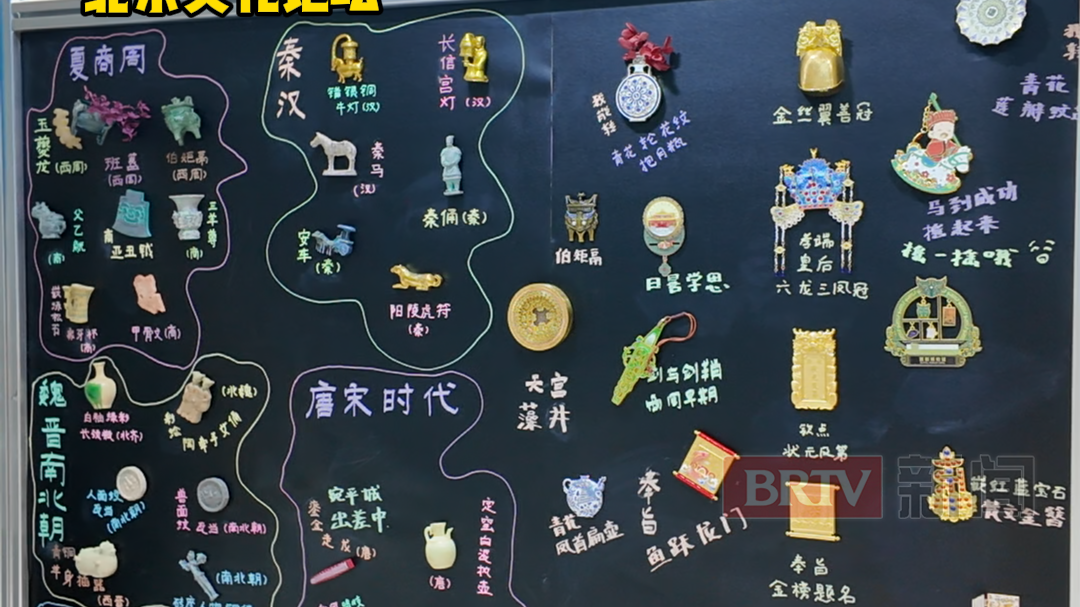 北京文化论坛
夏商周
玉龙
(西周)
班簋
(西周)
伯矩鬲
(西周)
父乙觥
(商)
商
亚丑钺
三羊尊
(商)
象牙杯
(商)
甲骨文(商)
秦汉
错银铜
牛灯(汉)
长信宫灯(汉)
秦马
(汉)
秦俑(秦)
安车
(秦)
阳陵虎符
(秦)
魏晋南北朝
白釉绿彩
长颈瓶(北齐)
(北魏)
彩绘
陶牵手女俑
人面纹
瓦当
(南北朝)
兽面纹
瓦当(南北朝)
青铜
(西晋)
(南北朝)
唐宋时代
宛平城
出差中
鎏金
走龙(唐)
(唐)
定窑白瓷执壶
我能转
青花轮花纹
抱月瓶
伯矩鬲
日晷学思
天宫
藻井
剑与剑鞘
西周早期
青花
凤首扁壶
奉旨
鱼跃龙门
金丝翼善冠
孝端
皇后
六龙三凤冠
软点
状元及第
奉旨
金榜题名
青花
莲瓣纹
马到成功
摇起来
摇一摇哦
红蓝宝石
金簪
BRTV 新闻